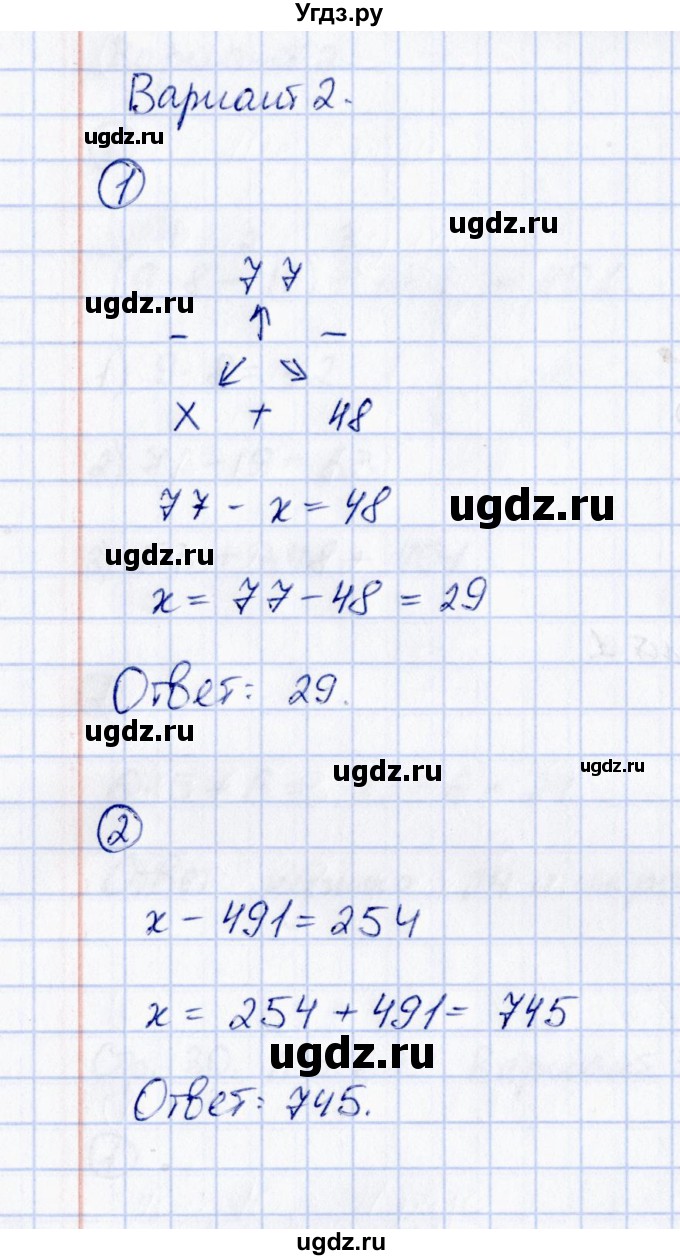 Угдз.ру
Вариант 2.
ugdz.ru
1
ugdz.ru
77
ugdz.ru
- ↑ -
↙ ↘
x + 48
77 - x = 48
ugdz.ru
ugdz.ru
x = 77 - 48 = 29
Ответ: 29.
ugdz.ru
ugdz.ru
ugdz.ru
2
x - 491 = 254
x = 254 + 491 = 745
ugdz.ru
Ответ: 745.
ugdz.ru